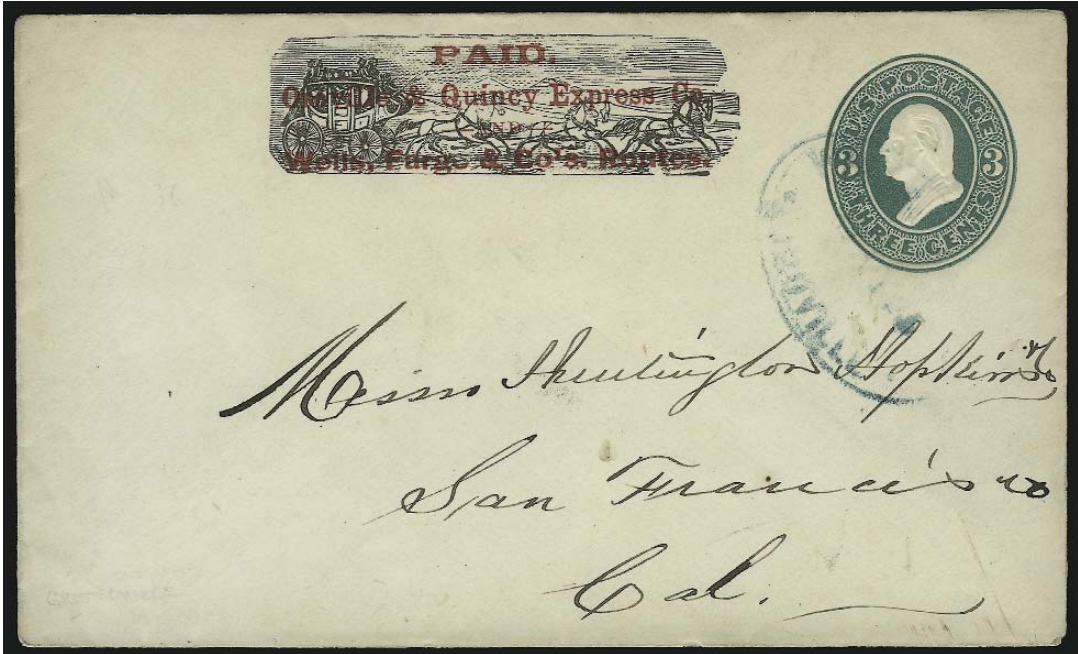 PAID.
Oroville & Quincy Express Co.
AND
Wells, Fargo & Co's. Routes.
U.S. POSTAGE
3 3
THREE CENTS
36
Huntington Hopkins
San Francisco
Cal.